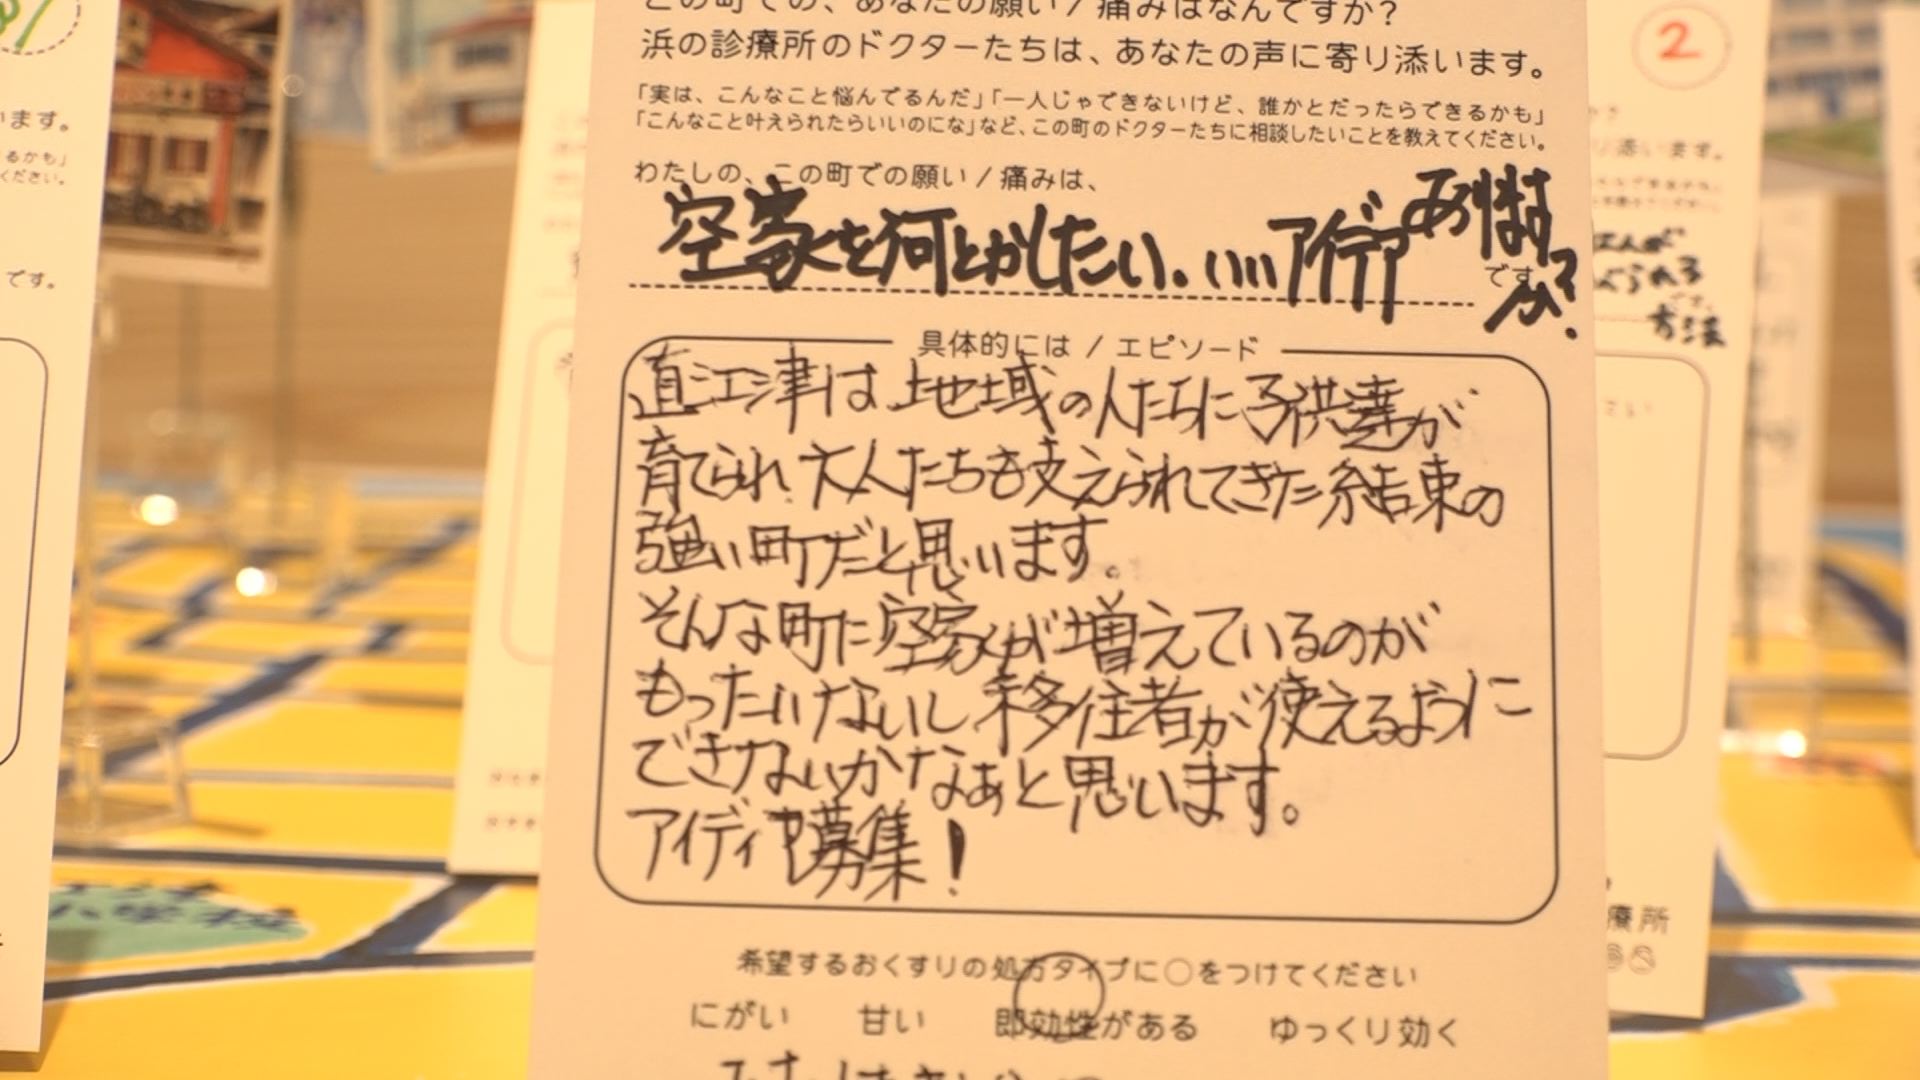 この町での、あなたの願い / 痛みはなんですか?
浜の診療所のドクターたちは、あなたの声に寄り添います。
「実は、こんなこと悩んでるんだ」「一人じゃできないけど、誰かとだったらできるかも」
「こんなこと叶えられたらいいのにな」など、この町のドクターたちに相談したいことを教えてください。
わたしの、この町での願い / 痛みは、
空家を何とかしたい。いいアイデアありますか?
です
具体的には / エピソード
直江津は地域の人たちに子供達が
育てられ、大人たちも支えられてきた結束の
強い町だと思います。
そんな町に空家が増えているのが
もったいないし移住者が使えるように
できないかなぁと思います。
アイディヤ募集!
希望するおくすりの処方タイプに○をつけてください
にがい 甘い 即効性がある ゆっくり効く
2
います。
るかも」
ください。
です。
添います。
られる
方法
さい
療所
小学校